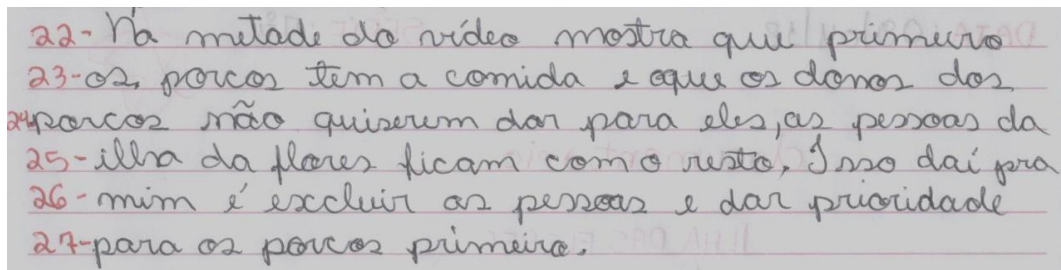 22- Na metade do vídeo mostra que primeiro
23- os porcos tem a comida e oque os donos dos
24- porcos não quiserem dar para eles, as pessoas da
25- illha da flores ficam com o resto. Isso daí pra
26- mim é excluir as pessoas e dar prioridade
27- para os porcos primeiro.